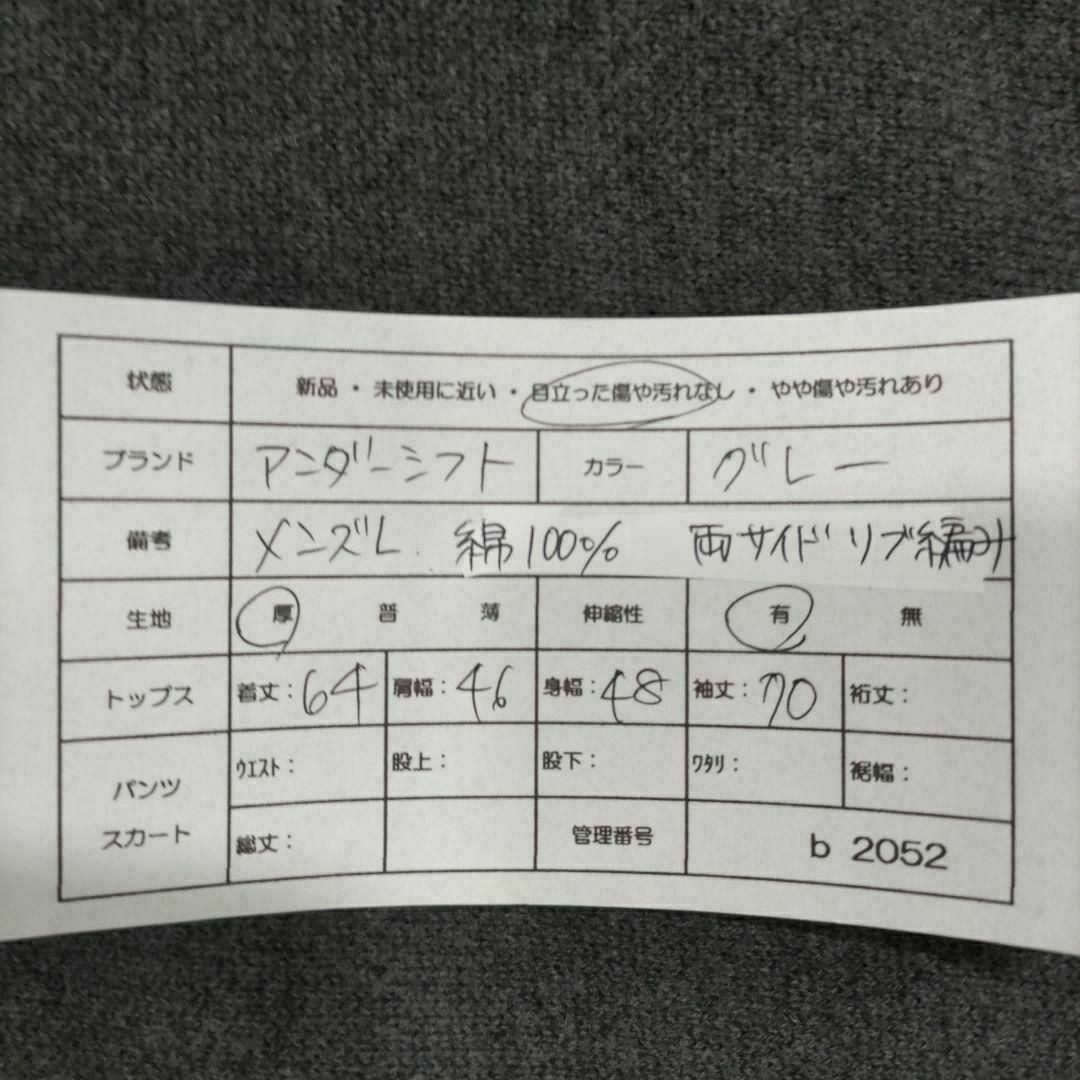 状態 新品・未使用に近い・目立った傷や汚れなし・やや傷や汚れあり
ブランド アンダーシフト カラー グレー
備考 メンズL. 綿100% 両サイドリブ編み
生地 厚 普 薄 伸縮性 有 無
トップス 着丈：64 肩幅：46 身幅：48 袖丈：70 裄丈：
パンツ スカート ウエスト： 股上： 股下： ワタリ： 裾幅：
総丈： 管理番号 b 2052